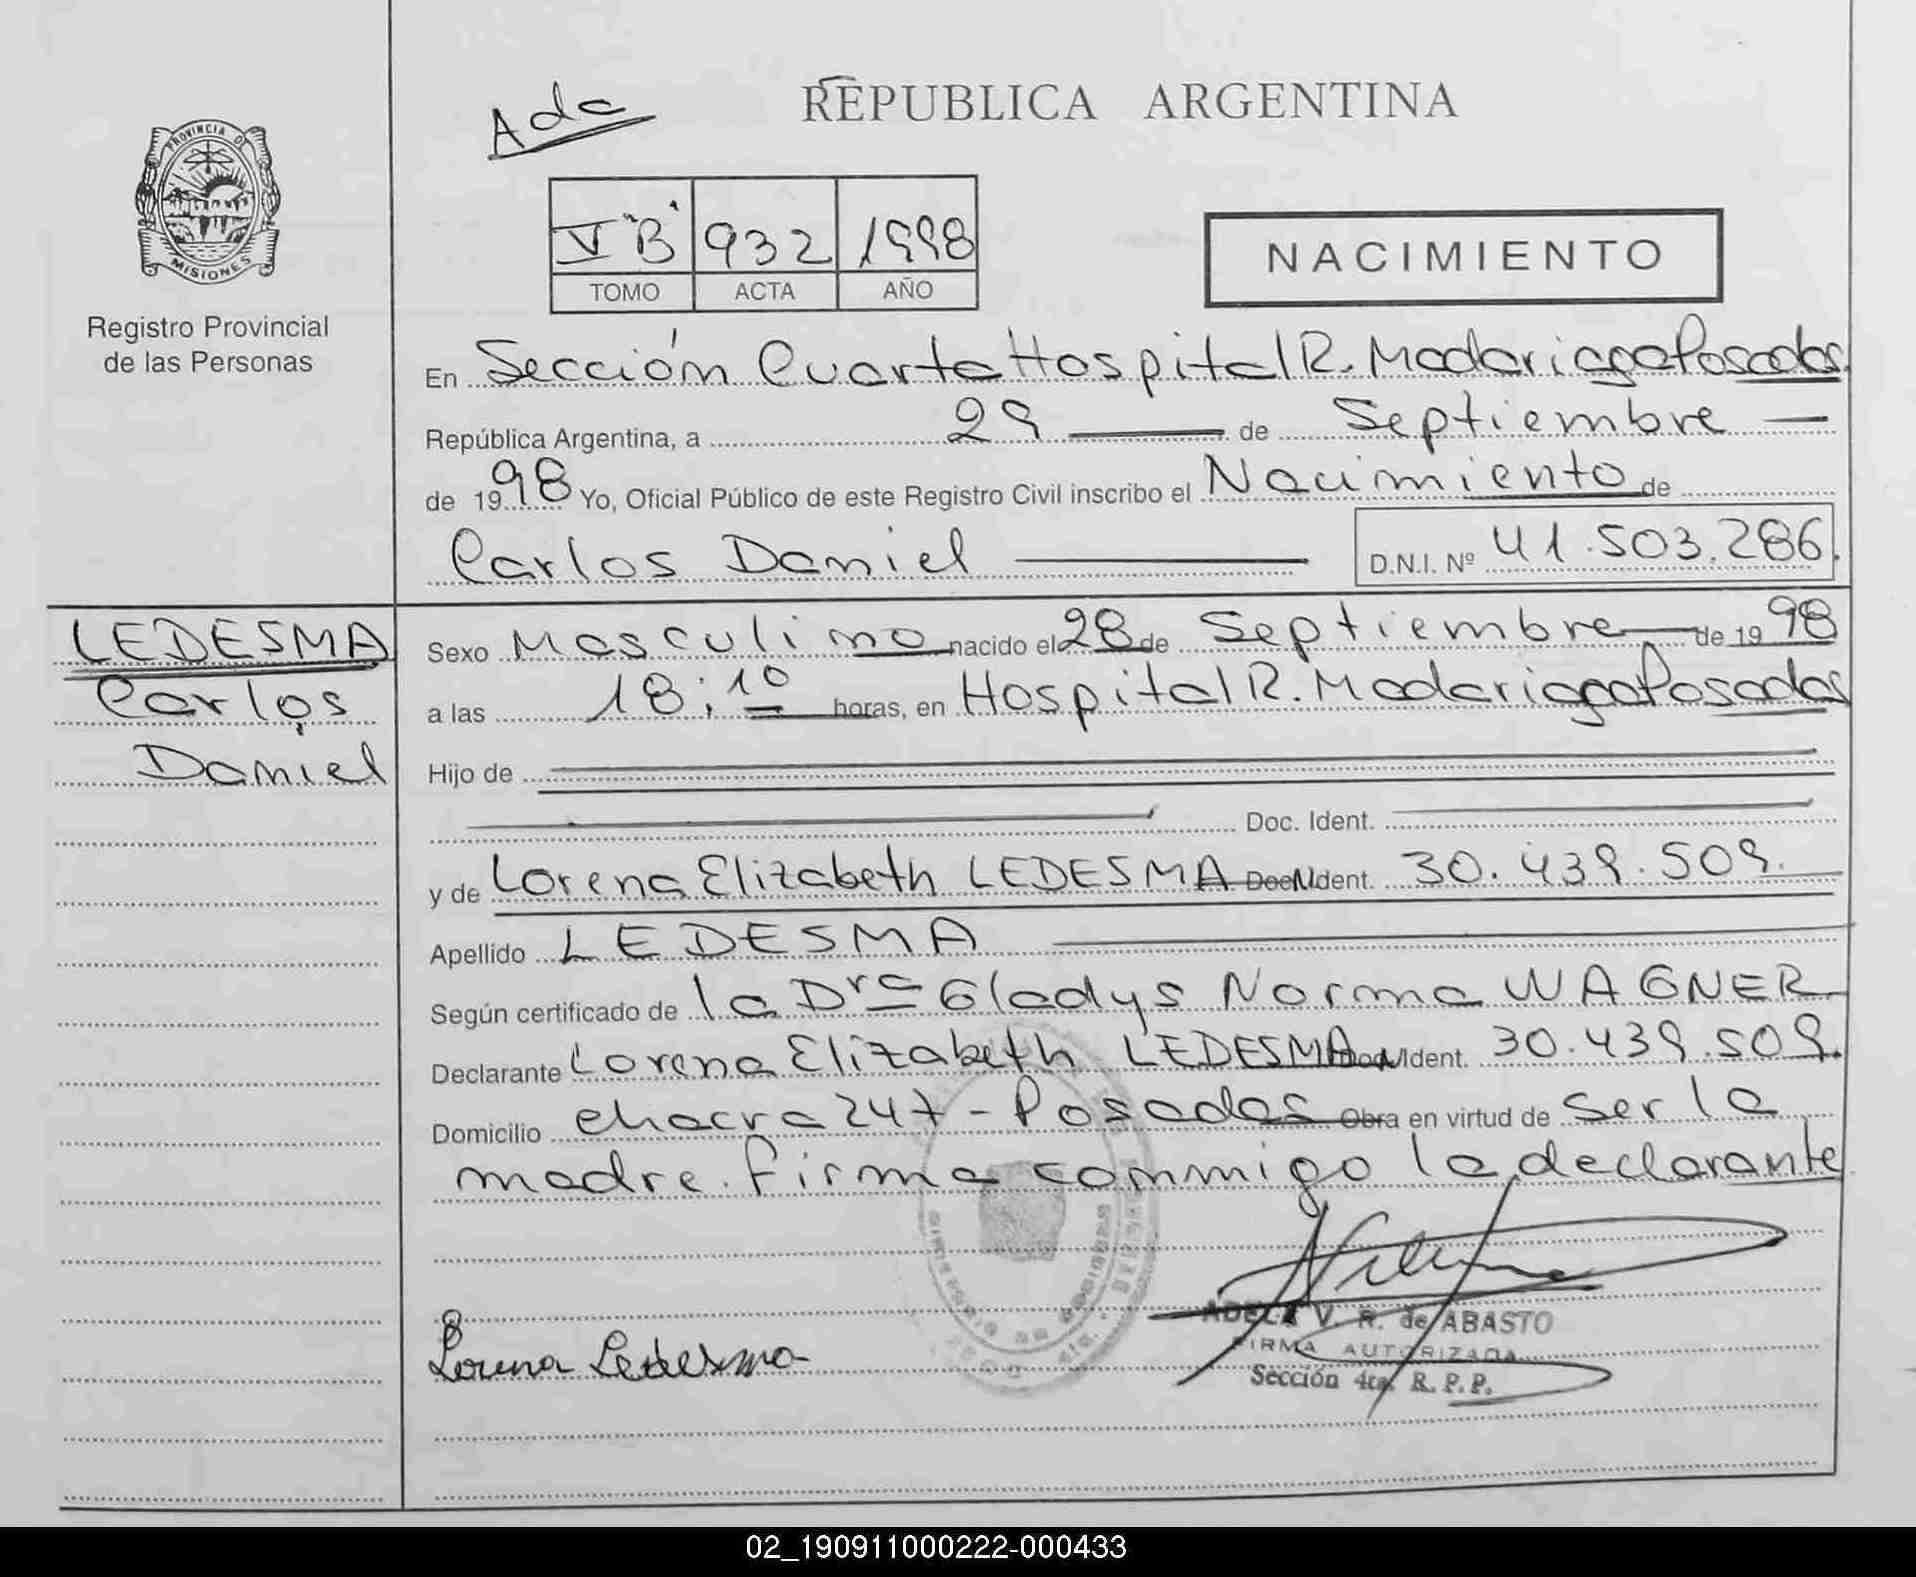 Ada
REPUBLICA ARGENTINA
PROVINCIA DE
MISIONES
Registro Provincial
de las Personas
V "B" 932 1998
TOMO ACTA AÑO
NACIMIENTO
En Sección Cuarta Hospital R. Madariaga Posadas
República Argentina, a 29 de Septiembre
de 1998 Yo, Oficial Público de este Registro Civil inscribo el Nacimiento de
Carlos Daniel D.N.I. Nº 41.503.286
LEDESMA
Carlos
Daniel
Sexo Masculino nacido el 28 de Septiembre de 1998
a las 18:10 horas, en Hospital R. Madariaga Posadas
Hijo de
Doc. Ident.
y de Lorena Elizabeth LEDESMA Doc. Ident. 30.439.509
Apellido LEDESMA
Según certificado de la Dra Gladys Norma WAGNER
Declarante Lorena Elizabeth LEDESMA Doc. Ident. 30.439.509
Domicilio chacra 247 - Posadas Obra en virtud de Ser la
madre. Firma conmigo la declarante
Lorena Ledesma
ADELA V. R. de ABASTO
FIRMA AUTORIZADA
Sección 4ta. R. P. P.
02_190911000222-000433